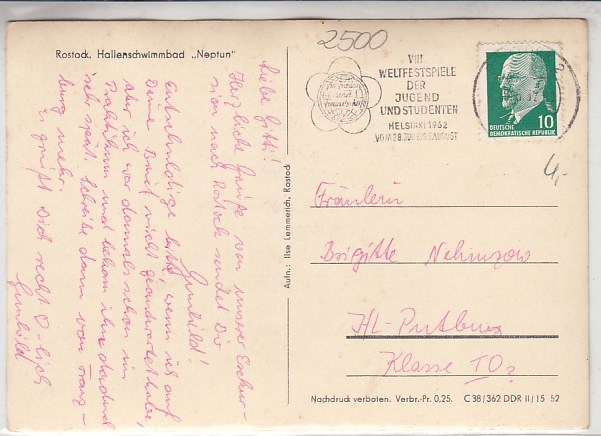 2500
Rostock, Hallenschwimmbad „Neptun"
VIII
WELTFESTSPIELE
DER
JUGEND
UND STUDENTEN
HELSINKI 1962
10
DEUTSCHE
DEMOKRATISCHE REPUBLIK
4,-
Liebe Gitti!
Herzliche Grüße von unserer Exkur-
sion nach Rostock sendet Dir
Gunhild!
Entschuldige bitte wenn ich auf
Deine Brief nicht geantwortet habe,
aber ich war damals schon im
Praktikum und bekam ihn dadurch
sehr spät. Schreibe dann von
burg mehr.
Es grüßt Dich recht ♡-lich
Gunhild
Aufn.: Ilse Lemmerich, Rostock
Fräulein
Brigitte Nehmzow
HL-Putbus
Klasse TO2
Nachdruck verboten. Verbr.-Pr. 0,25. C 38/362 DDR II/15 52